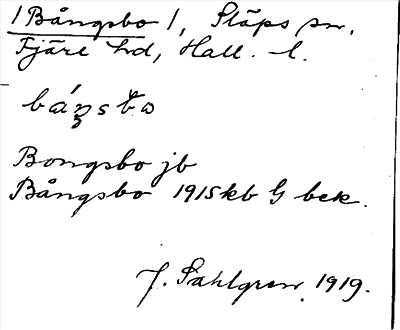 /Bångsbo/, Släps sn,
Fjäre hd, Hall. l.
Bongsbo jb
Bångsbo 1915 kb G bek.
J. Sahlgren 1919.